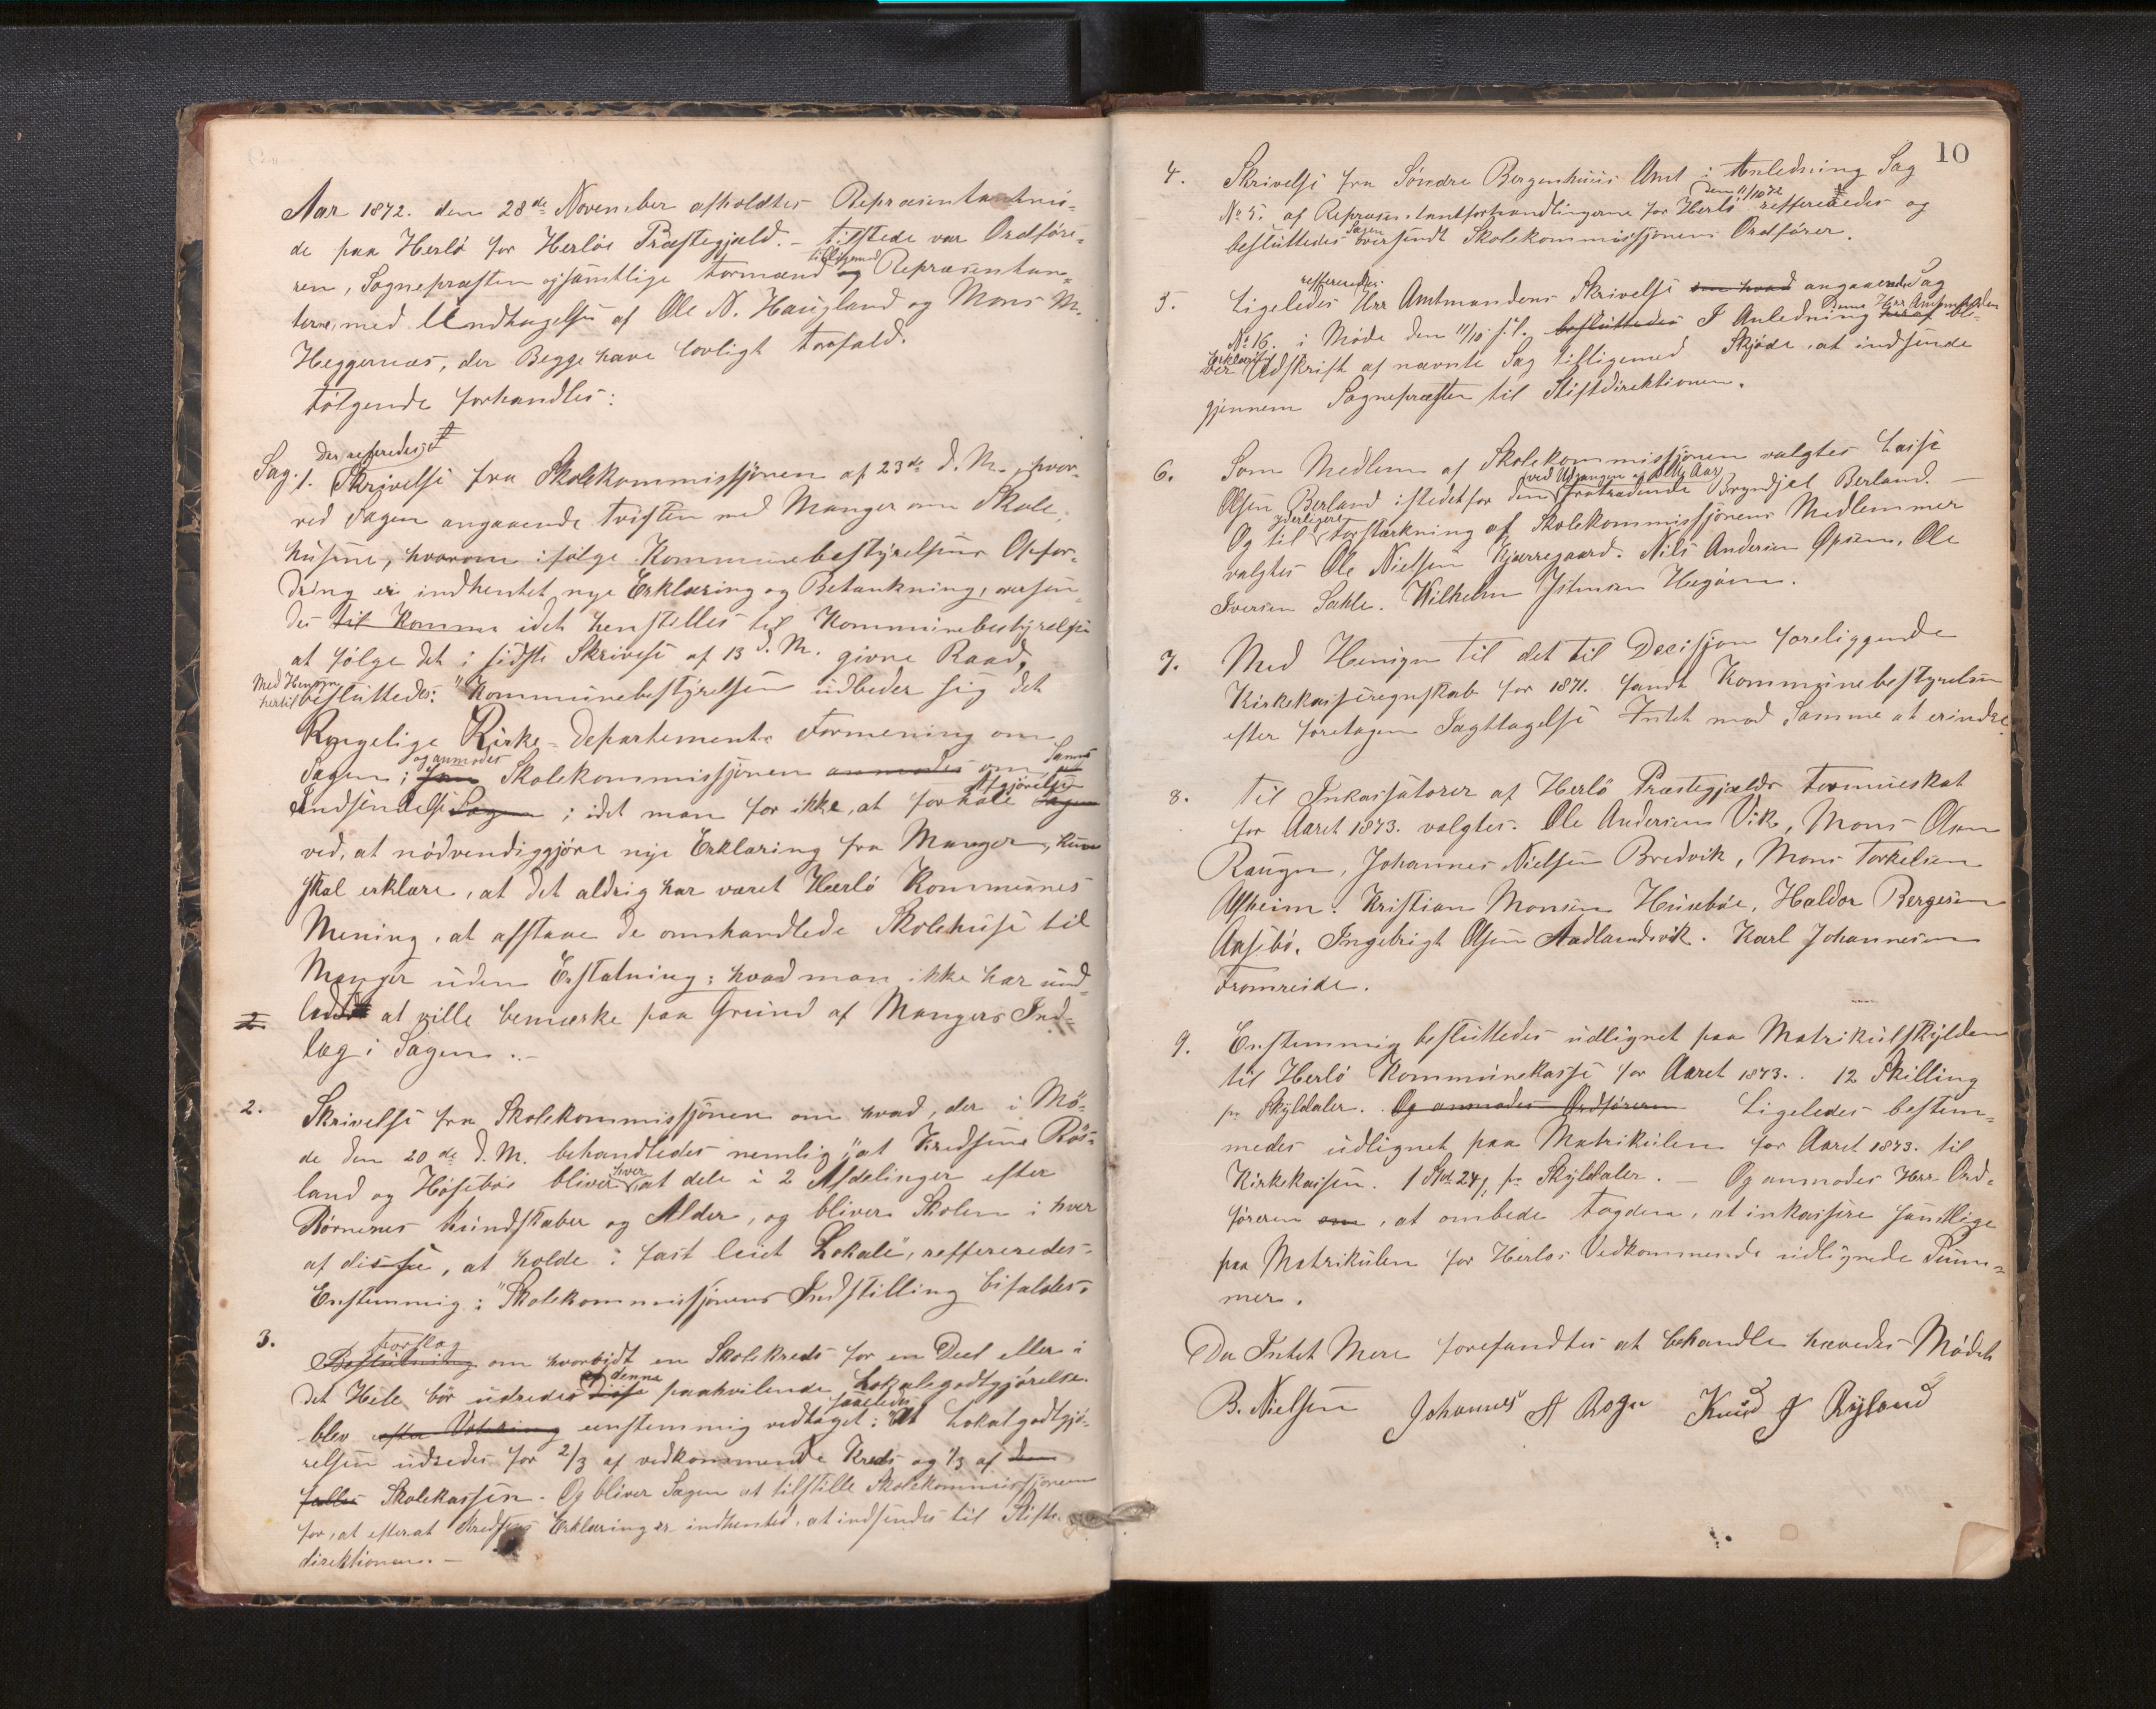 Aar 1872. den 28de November afholdtes Repræsentantmö-
de paa Herlö for Herlöe Præstegjæld. - Tilstede var Ordföre-
ren, Sognepræsten og samtlige Formænd tilligemed og Repræsentan-
terne, med Undtagelse af Ole N. Haugland og Mons M.
Heggernæs, der Begge have lovligt Forfald.
Følgende forhandles:
der refferedes
Sag. 1. Skrivelse fra Skolekommissjonen af 23de d. M., hvor-
ved Sagen angaaende Tvisten med Manger om Skole-
husene, hvorom ifølge Kommunebestyrelsens Opfor-
dring er indhentet nye Erklæring og Betænkning, oversen-
des til Komme idet henstilles til Kommunebestyrelsen
at følge det i sidste Skrivelse af 13 d. M. givne Raad,
Med Hensyn
hertil besluttedes: "Kommunebestyrelsen udbeder sig det
Kongelige Kirke-Departements Formening om
Sagen; og anmodes Skolekommissjonen anmodes om Samme
Indsendelse Sagen; idet man for ikke, at forhale Afgjörelsen Sagen
ved, at nödvendiggjöre nye Erklæring fra Manger, kun
skal erklære, at det aldrig har været Herlö Kommunes
Mening, at afstaae de omhandlede Skolehuse til
Manger uden Erstatning; hvad man ikke har und-
ladet at ville bemærke paa Grund af Mangers Ind-
læg i Sagen. -
2. Skrivelse fra Skolekommissjonen om hvad, der i Mö-
de den 20de d. M. behandledes nemlig "at Kredsene Ros-
land og Höjsböe bliver hver at dele i 2 Afdelinger efter
Börnenes Kundskaber og Alder, og bliver Skolen i hver
af disse, at holde i fast leiet Lokale", reffereredes.
Enstemmig: "Skolekommissjonens Indstilling bifaldes.
3. Forslag
Beslutning om hvorvidt en Skolekreds for en Deel eller i
det Hele bör udredes af denne disse paahvilende Lokalegodtgjörelse
blev efter Votering eenstemmig vedtaget: saaledes At Lokalgodtgjö-
relsen udredes for 2/3 af vedkommende Kreds og 1/3 af den
fælles Skolekassen. Og bliver Sagen at tilstille Skolekommissjonen
for, at efterat Kredsens Erklæring er indhented, at indsendes til Stifts-
direktionen. -
10
4. Skrivelse fra Söndre Bergenhuus Amt i Anledning Sag
No 5. af Repræsentantforhandlingerne for Herlö den 11/10 72 reffereredes og
besluttedes Sagen oversendt Skolekommissjonens Ordförer.
5. Ligeledes reffereredes Hrr Amtmandens Skrivelse om hvad angaaende Sag
No 16. i Möde den 11/10 f. l. besluttedes I Anledning heraf
Udskrift af nævnte Sag tilligemed Skjöde, at indsende
gjennem Sognepræsten til Stiftdirektionen.
6. Som Medlem af Skolekommissjonen valgtes Lasse
Olsen Berland istedetfor den ved Udgangen af dette Aar fratrædende Bryndjel Berland. -
Og til yderligere Forstærkning af Skolekommissjonens Medlemmer
valgtes Ole Nielsen Kjærregaard. Nils Andersen Opsen, Ole
Iversen Sæhle. Wilhelm Hegöen.
7. Med Hensyn til det til Decisjon foreliggende
Kirkekasseregnskab for 1871. fandt Kommunebestyrelsen
efter foretagen Iagttagelse Intet mod Samme at erindre.
8. Til Inkassatorer af Herlö Præstegjælds Formueskat
for Aaret 1873. valgtes. Ole Andersen Vik, Mons Olsen
Raugn, Johannes Nielsen Bredvik, Mons Torkelsen
Alfheim. Kristian Monsen Husebøe, Haldor Bergesen
Aasebö, Ingebrigt Olsen Aadlandsvik. Karl Johannesen
Fromreide.
9. Enstemmig besluttedes udlignet paa Matrikulskylden
til Herlö Kommunekasse for Aaret 1873. . 12 Skilling
pr Skyldaler. Og anmodes Ordföreren Ligeledes bestem-
medes udlignet paa Matrikülen for Aaret 1873. til
Kirkekassen. 1 Spd 24 pr Skyldaler. - Og anmodes Hrr Ord-
föreren om, at ombede Fogden, at inkassere samtlige
paa Matrikülen for Herlös Vedkommende udlignede Sum-
mer.
Da Intet Mere forefandtes at behandle hævedes Mödet
B. Nielsen Johannes A Rogn Knud J Ryland